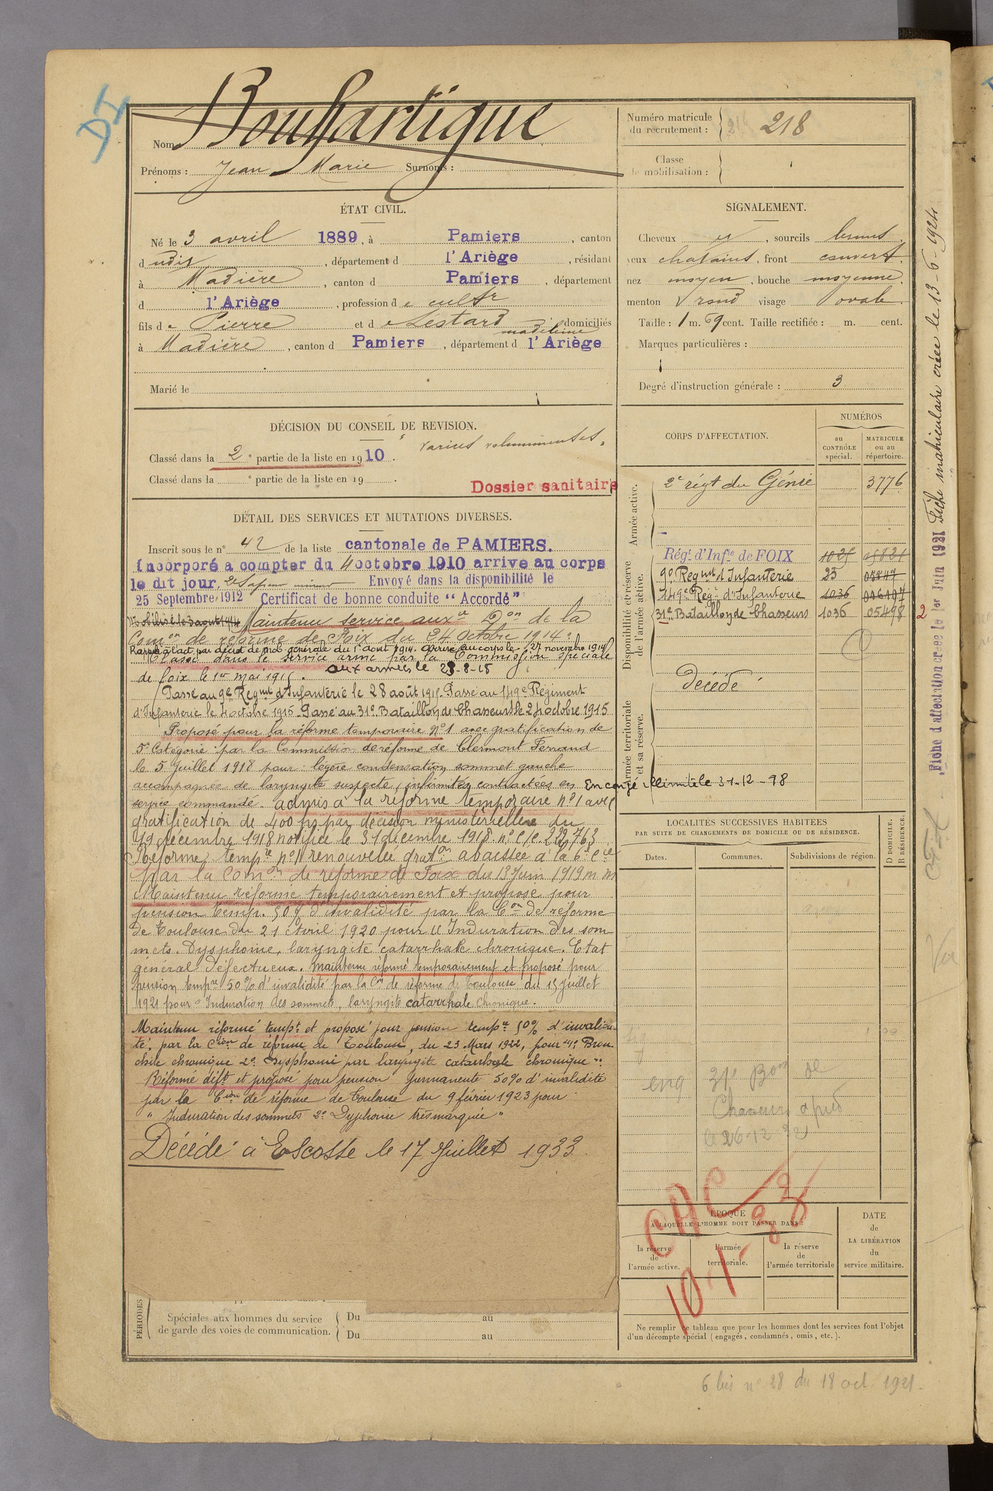 D I
Nom Bouffartigue
Prénoms : Jean Marie Surnoms :
Numéro matricule
du recrutement : 218
Classe
de mobilisation :
ÉTAT CIVIL.
Né le 3 avril 1889, à Pamiers, canton
dudit, département d l'Ariège, résidant
à Madière, canton d Pamiers, département
d l'Ariège, profession de cultr
fils de Pierre et de Lestard madeleine, domiciliés
à Madière, canton d Pamiers, département d l'Ariège
Marié le
SIGNALEMENT.
Cheveux et, sourcils bruns
yeux chatains, front couvert
nez moyen, bouche moyenne
menton rond visage ovale
Taille : 1 m. 69 cent. Taille rectifiée : m. cent.
Marques particulières :
Degré d'instruction générale : 3
DÉCISION DU CONSEIL DE REVISION.
Classé dans la 2e partie de la liste en 1910. Varices volumineuses.
Classé dans la e partie de la liste en 19 .
Dossier sanitaire
DÉTAIL DES SERVICES ET MUTATIONS DIVERSES.
Inscrit sous le n° 42 de la liste cantonale de PAMIERS.
Incorporé a compter du 4 octobre 1910 arrivé au corps
le dit jour, 2e Sapeur mineur Envoyé dans la disponibilité le
25 Septembre 1912 Certificat de bonne conduite "Accordé"
Mobilisé le 3 août 1914 Maintenu service auxre Don de la
Comon de réforme de Foix du 24 Octobre 1914.
Rappelé à l'act. par décret de mob. générale du 1er août 1914. Arrivé au corps le 27 novembre 1914
Classé dans le service armé par la Commission spéciale
de Foix le 1er mai 1915. aux armées le 28-8-15
Passé au 9e Regmt d'Infanterie le 28 août 1915. Passé au 149e Régiment
d'Infanterie le 4 octobre 1915. Passé au 31e Bataillon de Chasseurs le 24 octobre 1915
Proposé pour la réforme temporaire n° 1 avec gratification de
5e Catégorie par la Commission de réforme de Clermont Ferrand
le 5 Juillet 1918 pour légère condensation sommet gauche
accompagnée de laryngite suspecte, infirmités contractées en
service commandé. admis à la réforme temporaire n° 1 avec
gratification de 400 frs par décision ministérielle du
19 décembre 1918 notifiée le 31 décembre 1918 n° C/C. 229.763
Réforme tempre n° 1 renouvelée graton abaissée à la 6e Cie
par la Comon de réforme de Foix du 13 Juin 1919
Maintenu réformé temporairement et proposé pour
pension temp. 50% d'invalidité par la Con de réforme
de Toulouse du 21 Avril 1920 pour Induration des som
mets. Dysphonie, laryngite catarrhale chronique. Etat
général défectueux. Maintenu réformé temporairement et proposé pour
pension tempre 50% d'invalidité par la Con de réforme de Toulouse du 15 Juillet
1921 pour "Induration des sommets, laryngite catarrhale chronique.
Maintenu réformé tempt et proposé pour pension tempre 50% d'invalidi-
té, par la Cion de réforme de Toulouse, du 23 Mars 1922, pour 1° Bron-
chite chronique 2° Dysphonie par laryngite catarrhale chronique".
Réformé défift et proposé pour pension permanente 50% d'invalidité
par la Cion de réforme de Toulouse du 9 février 1923 pour :
" Induration des sommets 2° Dysphonie très marquée "
Décédé à Escosse le 17 Juillet 1933
CORPS D'AFFECTATION.
NUMÉROS
au
CONTRÔLE
spécial.
MATRICULE
ou au
répertoire.
Armée active.
2e régt du Génie 3776
Disponibilité et réserve
de l'armée active.
Régt d'Infie de FOIX 1025
9e Regmt d'Infanterie 23
149e Regt d'Infanterie 1036
31e Bataillon de Chasseurs 1036 05498
2
Armée territoriale
et sa réserve.
Décédé
En congé illimité le 31-12-78
LOCALITÉS SUCCESSIVES HABITÉES
PAR SUITE DE CHANGEMENTS DE DOMICILE OU DE RÉSIDENCE.
Dates. Communes. Subdivisions de région.
D DOMICILE.
R RÉSIDENCE.
31e Bon de
Chasseurs à pied
CAC
10-1-
ÉPOQUE
A LAQUELLE L'HOMME DOIT PASSER DANS :
la réserve
de
l'armée active.
l'armée
territoriale.
la réserve
de
l'armée territoriale
DATE
de
LA LIBÉRATION
du
service militaire.
Ne remplir ce tableau que pour les hommes dont les services font l'objet
d'un décompte spécial (engagés, condamnés, omis, etc.).
PÉRIODES
Spéciales aux hommes du service
de garde des voies de communication.
Du au
Du au
6 bis n° 18 du 18 oct. 1921.
Fiche d'affectation créée le 1er Juin 1921 Fiche matriculaire créée le 13-6-1924